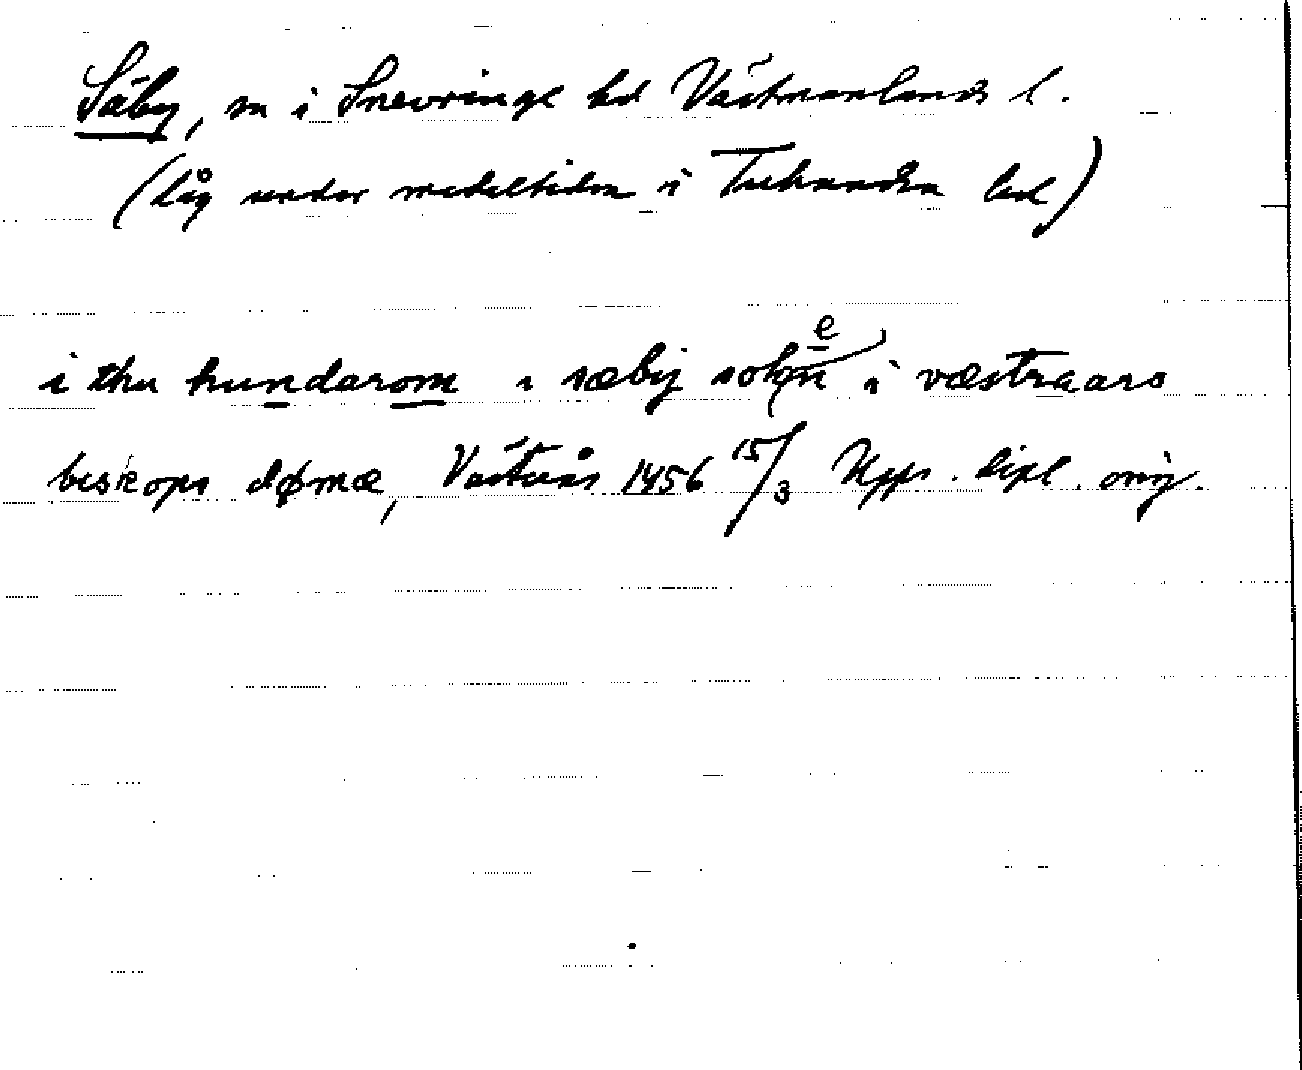 Säby, sn i Snevringe hd Västmanlands l.
(låg under medeltiden i Tuhundra hd)
i thu hundarom i sæby sokn e i væstraars
biskops dømæ, Västerås 1456 15/3 Upps. dipl. orig.